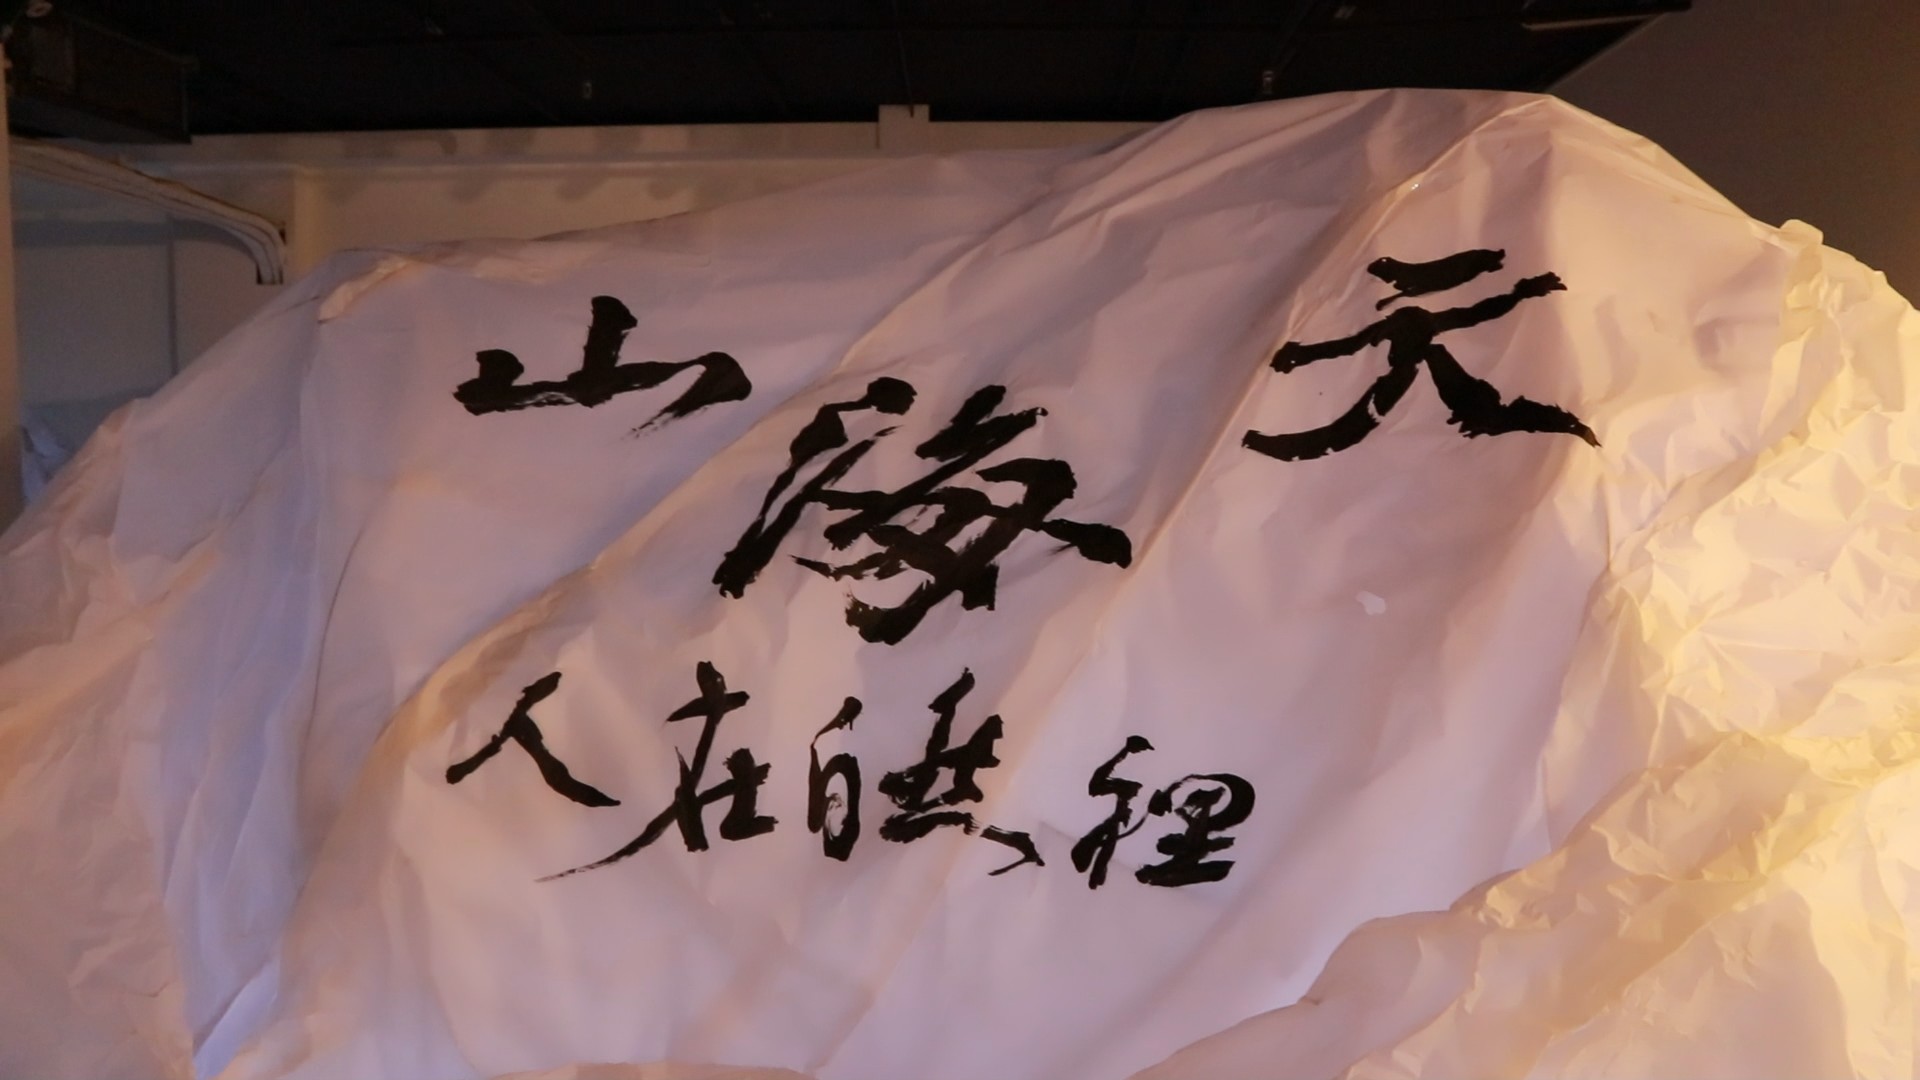 山海天
人在自然裡